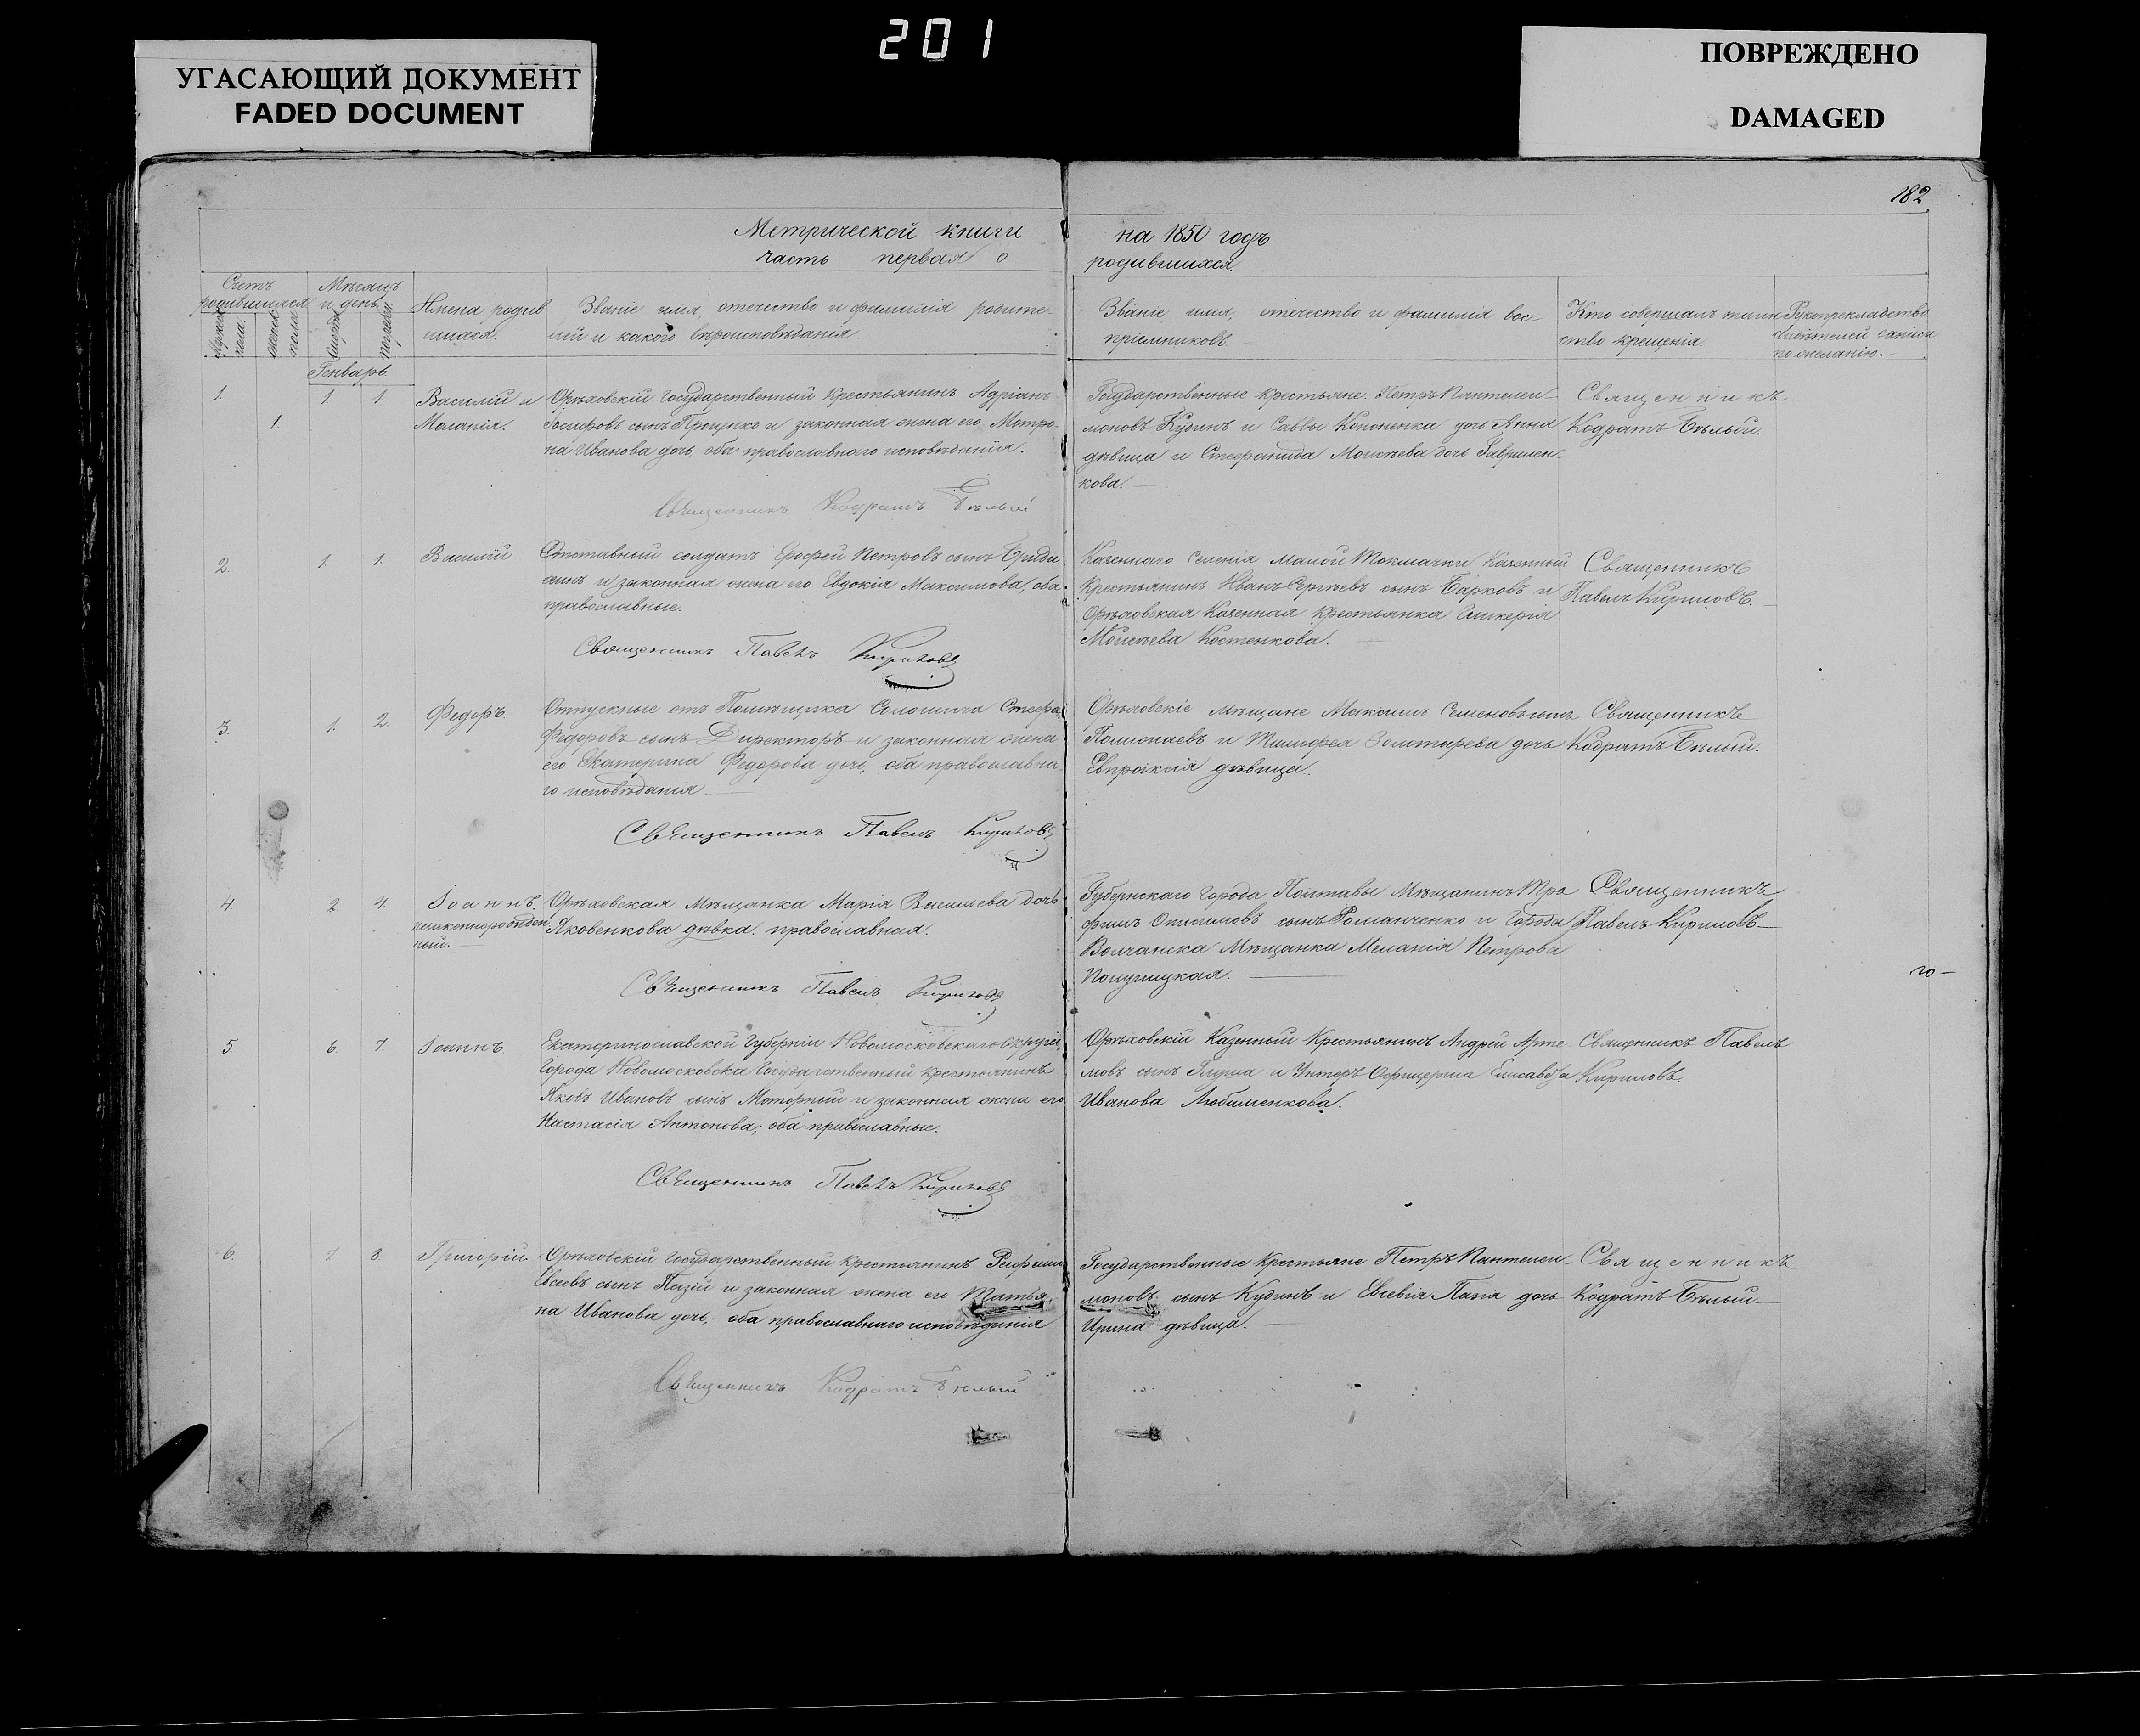 201
УГАСАЮЩИЙ ДОКУМЕНТ
FADED DOCUMENT
ПОВРЕЖДЕНО
DAMAGED
182
Метрической книги на 1850 годъ
часть первая о родившихся.
Счетъ родившихся
Мѣсяцъ и день
Имена родившихся.
Званіе имя, отечество и фамилія родителей и какого вѣроисповѣданія
Званіе имя, отечество и фамилія воспріемниковъ.
Кто совершалъ таинство крещенія.
Рукоприкладство свидѣтелей записи по желанію.
мужеска пола
женска пола
Генварь.
1. 1. 1. Василій и
1. Маланія.
Орѣховскій Государственный Крестьянинъ Адріанъ
Іосифовъ сынъ Проценко и законная жена его Матро-
на Иванова дочь, оба православнаго исповѣданія.
Священникъ Кодратъ Бѣлый
Государственные крестьяне: Петръ Пантелеи-
моновъ Кудинъ и Саввы Кононенка дочь Анна
дѣвица и Стефанида Моисѣева дочь Гаврилен-
кова.
Священникъ
Кодратъ Бѣлый.
2. 1. 1. Василій
Отставный солдатъ Ерофей Петровъ сынъ
и законная жена его Евдокія Максимова, оба
православные.
Священникъ Павелъ Кириловъ
Казеннаго Селенія Малой Токмачки Казенный
Крестьянинъ Иванъ Сергѣевъ сынъ Барковъ и
Орѣховская Казенная Крестьянка Гликерія
Моисѣева Костенкова.
Священникъ
Павелъ Кириловъ.
3. 1. 2. Федоръ.
Отпускные отъ Помѣщика Стефа
Федоровъ сынъ Директоръ и законная жена
его Екатерина Федорова дочь, оба православна-
го исповѣданія
Священникъ Павелъ Кириловъ
Орѣховскіе мѣщане Максимъ Семеновъ сынъ
и Тимофея Золотарева дочь
Евпраксія дѣвица.
Священникъ
Кодратъ Бѣлый.
4. 2. 4. Іоаннъ.
незаконнорожден
ный.
Орѣховская Мѣщанка Марія Васильева дочь
Яковенкова дѣвка. православная.
Священникъ Павелъ Кириловъ
Губернскаго Города Полтавы Мѣщанинъ Тро
фимъ Онисимовъ сынъ Романченко и Города
Волчанска Мѣщанка Меланія Петрова
Священникъ
Павелъ Кириловъ
го
5. 6. 7. Іоаннъ.
Екатеринославской Губерніи Новомосковскаго округа,
Города Новомосковска Государственный крестьянинъ
Яковъ Ивановъ сынъ Моторный и законная жена его
Настасія Антонова, оба православные.
Священникъ Павелъ Кириловъ
Орѣховскій Казенный Крестьянинъ Андрей Арте-
мовъ сынъ Глуша и Унтеръ Офицерша Елисавета
Иванова Любименкова.
Священникъ Павелъ
Кириловъ.
6. 7. 8. Григорій.
Орѣховскій Государственный крестьянинъ
Евсеевъ сынъ Пазій и законная жена его Татья
на Иванова дочь, оба православнаго исповѣданія
Священникъ Кодратъ Бѣлый
Государственные Крестьяне Петръ Пантелеи-
моновъ сынъ Кудинъ и Евсевія Пазія дочь
Ирина дѣвица.
Священникъ
Кодратъ Бѣлый.